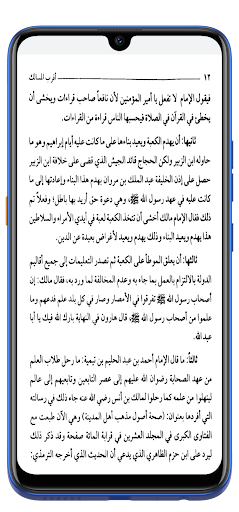 ١٢ أقرب المسالك
فيقول الإمام لا تفعل يا أمير المؤمنين لأن نافعاً صاحب قراءات ويخشى أن
يخطئ في القرآن في الصلاة فيحسبها الناس قراءة من القراءات.
ثانيها: أن يهدم الكعبة ويعيد بناءها على ما كانت عليه أيام إبراهيم وهو ما
حاوله ابن الزبير ولكن الحجاج قائد الجيش الذي قضى على خلافة ابن الزبير
حصل على إذن الخليفة عبد الملك بن مروان بهدم هذا البناء وإعادتها إلى ما
كانت عليه في عهد رسول الله ﷺ، وهي دعوة حق أريد بها باطل؛ وفعلاً تم
ذلك فقال الإمام مالك أخشى أن تتخذ الكعبة لعبة في أيدي الأمراء والسلاطين
هذا يهدم ويعيد البناء وذلك يهدم ويعيد لأغراض بعيدة عن الدين.
ثالثها: أن يعلق الموطأ على الكعبة ثم تصدر التعليمات إلى جميع أقاليم
الدولة بالالتزام بالعمل بما جاء به وعدم المخالفة لما ورد به، فقال مالك: إن
أصحاب رسول الله ﷺ تفرقوا في الأمصار وصار في كل بلد علم فدعهم وما
علموا من أصحاب رسول الله ﷺ، قال هارون في النهاية بارك الله فيك يا أبا
عبدالله.
ثالثاً: ما قال الإمام أحمد بن عبد الحليم بن تيمية: ما رحل طلاب العلم
من عهد الصحابة رضوان الله عليهم إلى عصر التابعين وتابعيهم إلى عالم
لينهلوا من علمه كما رحلوا لمالك بن أنس رضي الله عنه جاء ذلك في رسالته
التي أفردها بعنوان: (صحة أصول مذهب أهل المدينة) وهي الآن طبعت مع
الفتاوى الكبرى في المجلد العشرين في قرابة المائة صفحة وقد ذكر ذلك
ليرد على ابن حزم الظاهري الذي يدعي أن الحديث الذي أخرجه الترمذي: